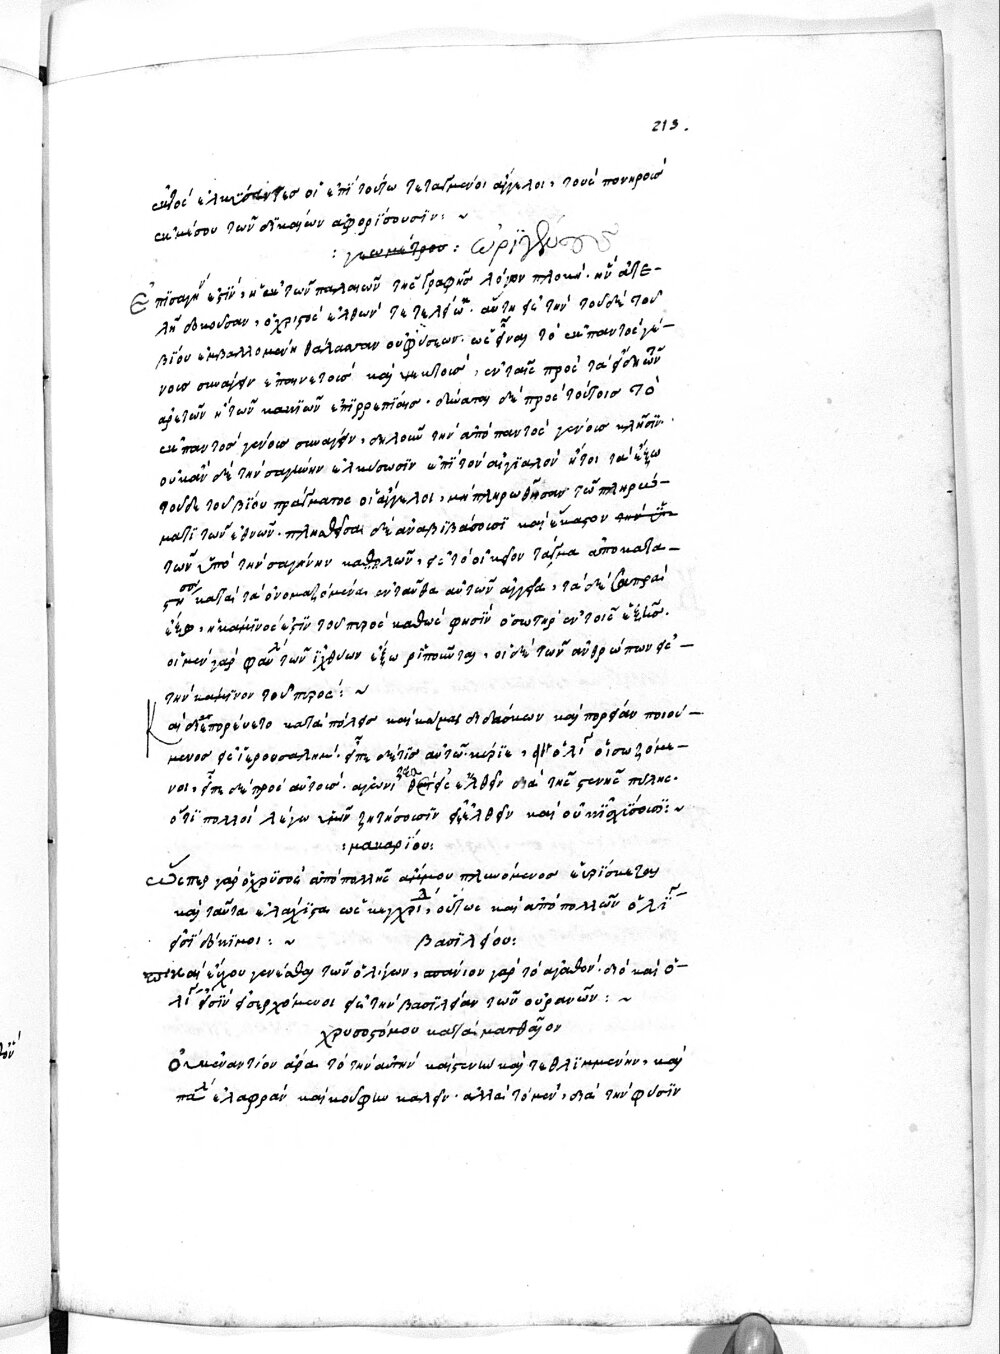 213.
ἐκτὸς ἑλκύσαντες οἱ ἐπὶ τούτω τεταγμένοι ἄγγελοι, τοὺς πονηροὺς
ἐκ μέσου τῶν δικαίων ἀφορίσουσιν: ~
: γεωμέτρου : ὠριγένους
Ἐπὶ σαγήνη ἐστὶν, ἡ ἐκ τῶν παλαιῶν τῆς γραφῆς λόγων πλοκὴ. ἣν ἀτε-
λῆ δοκοῦσαν, ὁ χριστὸς ἐλθὼν τετελείωκ. αὕτη εἰς τὴν τοῦδε τοῦ
βίου ἐμβαλλομένη θάλασσαν οὐ φύσεων. ὡς εἶναι τὸ ἐκ παντὸς γέ-
νους συναγεῖν ἐπαινετοὺς καὶ ψεκτοὺς, ἐν ταῖς πρὸς τὰ εἴδη τῶν
ἀρετῶν ἢ τῶν κακιῶν ἐπιρρεπείαις. δύναται δὲ πρὸς τούτοις τὸ
ἐκ παντὸς γένους συναγεῖν, δηλοῦν τὴν ἀπὸ παντὸς γένους κλῆσιν.
οὐκ ἂν δὲ τὴν σαγήνην ἑλκύσωσιν ἐπὶ τὸν αἰγιαλὸν ἤτοι τὰ ἔξω
τοῦδε τοῦ βίου πράγματος οἱ ἄγγελοι, μὴ πληρωθῆσαν τῶ πληρώ-
ματι τῶν ἐθνῶν. πληθεῖσαν δὲ ἀναβιβάσουσι καὶ ἕκαστον τὴν
τῶν ὑπὸ τὴν σαγήνην καλῶν, εἰς τὸ οἰκεῖον τάγμα ἀποκατα-
στήσουσι κατὰ τὰ ὀνομαζόμενα ἐνταῦθα αὐτῶν ἀγγεῖα, τὰ δὲ σαπρὰ
ἔξω, ἡ κάμινος ἐστὶν τοῦ πυρὸς καθὼς φησὶν ὁ σωτὴρ ἐν τοῖς ἑξῆς.
οἱ μὲν γὰρ φαῦλα τῶν ἰχθύων ἔξω ῥιπτοῦνται, οἱ δὲ τῶν ἀνθρώπων εἰς
τὴν κάμινον τοῦ πυρὸς: ~
Καὶ διεπορεύετο κατὰ πόλεις καὶ κώμας διδάσκων καὶ πορείαν ποιού-
μενος εἰς ἱερουσαλήμ. εἶπε δέ τις αὐτῶ. κύριε, εἰ ὀλίγοι οἱ σωζόμε-
νοι, εἶπε δὲ πρὸς αὐτοὺς. ἀγωνίζεσθε εἰσελθεῖν διὰ τῆς στενῆς πύλης.
ὅτι πολλοὶ λέγω ὑμῖν ζητήσουσιν εἰσελθεῖν καὶ οὐκ ἰσχύσουσι: ~
: μακαρίου:
Ὥσπερ γὰρ ὁ χρυσὸς ἀπὸ πολλῆς ἄμμου πλυνόμενος εὑρίσκεται
καὶ ταῦτα ἐλάχιστα ὡς κέγχροι, οὕτως καὶ ἀπὸ πολλῶν ὀλίγοι
εἰσὶ δόκιμοι: ~ βασιλείου:
καὶ εὔχου γενέσθαι τῶν ὀλίγων, σπάνιον γὰρ τὸ ἀγαθὸν. διὸ καὶ ὀ-
λίγοι εἰσὶν εἰσερχόμενοι εἰς τὴν βασιλείαν τῶν οὐρανῶν: ~
χρυσοστόμου κατὰ ματθαῖον
Οὐκ ἐναντίον ἄρα τὸ τὴν αὐτὴν καὶ στενὴν καὶ τεθλιμμένην, καὶ
πάλιν ἐλαφρὰν καὶ κούφην καλεῖν. ἀλλὰ τὸ μὲν, διὰ τὴν φύσιν